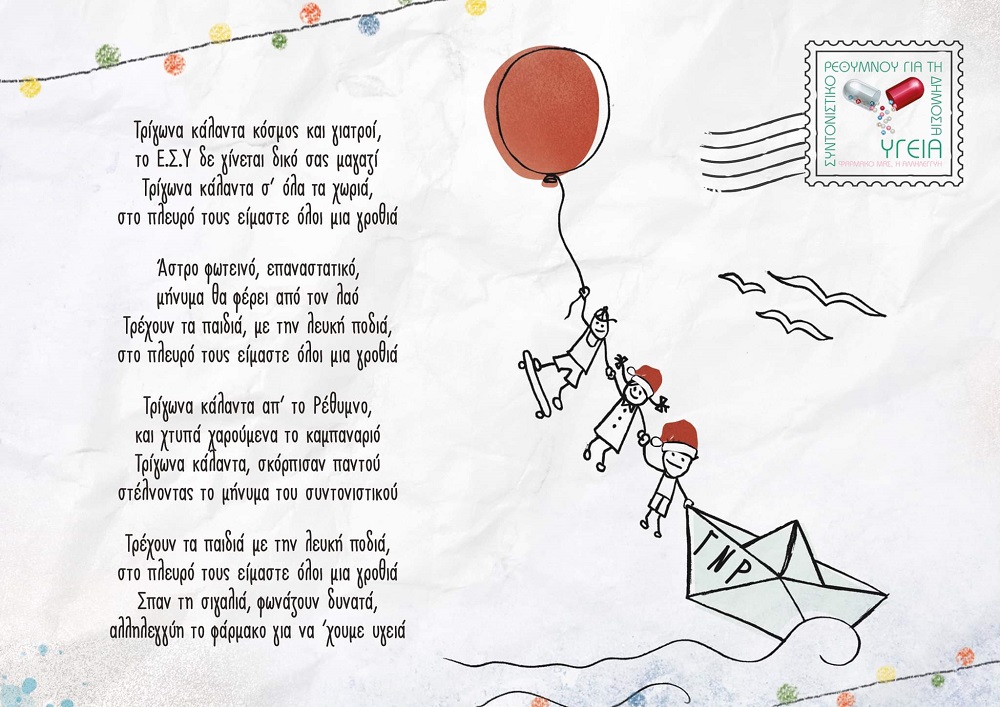 Τρίγωνα κάλαντα κόσμος και γιατροί,
το Ε.Σ.Υ δε γίνεται δικό σας μαγαζί
Τρίγωνα κάλαντα σ' όλα τα χωριά,
στο πλευρό τους είμαστε όλοι μια γροθιά
Άστρο φωτεινό, επαναστατικό,
μήνυμα θα φέρει από τον λαό
Τρέχουν τα παιδιά, με την λευκή ποδιά,
στο πλευρό τους είμαστε όλοι μια γροθιά
Τρίγωνα κάλαντα απ' το Ρέθυμνο,
και χτυπά χαρούμενα το καμπαναριό
Τρίγωνα κάλαντα, σκόρπισαν παντού
στέλνοντας το μήνυμα του συντονιστικού
Τρέχουν τα παιδιά με την λευκή ποδιά,
στο πλευρό τους είμαστε όλοι μια γροθιά
Σπαν τη σιγαλιά, φωνάζουν δυνατά,
αλληλεγγύη το φάρμακο για να 'χουμε υγειά
ΣΥΝΤΟΝΙΣΤΙΚΟ
ΡΕΘΥΜΝΟΥ ΓΙΑ ΤΗ
ΔΗΜΟΣΙΑ
ΥΓΕΙΑ
ΦΑΡΜΑΚΟ ΜΑΣ, Η ΑΛΛΗΛΕΓΓΥΗ
ΓΝΡ